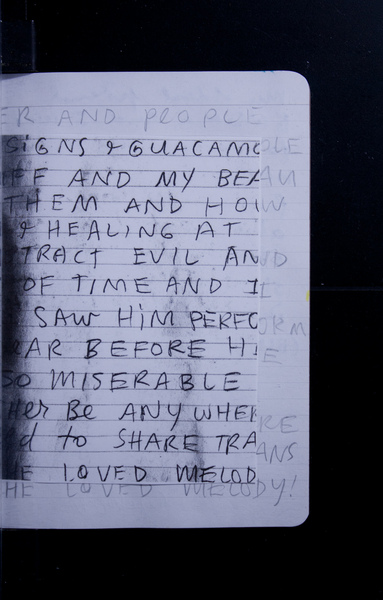 ER AND PEOPLE
SIGNS & GUACAMOLE
FF AND MY BEAU
THEM AND HOW
& HEALING AT
TRACT EVIL AND
OF TIME AND I
SAW HIM PERFORM
EAR BEFORE HE
SO MISERABLE
HER BE ANYWHERE
ED TO SHARE TRANS
HE LOVED MELOD
HE LOVED MELODY!